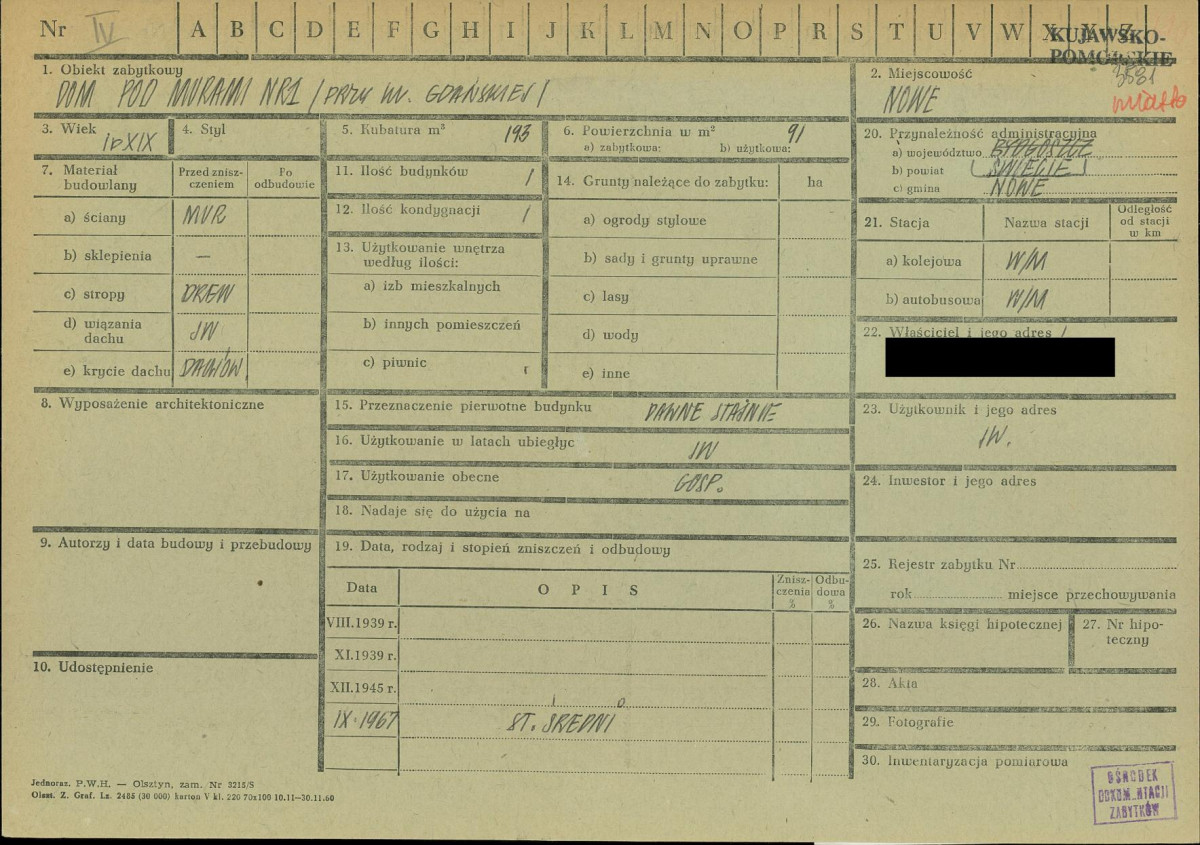 Nr IV A B C D E F G H I J K L M N O P R S T U V W X Y Z
KUJAWSKO-
POMORSKIE
1. Obiekt zabytkowy
DOM POD MURAMI NR 1 / PRZY UL. GDAŃSKIEJ /
2. Miejscowość
NOWE
miasto
3. Wiek
XIX
4. Styl
5. Kubatura m³ 193
6. Powierzchnia w m² 91
a) zabytkowa: b) użytkowa:
20. Przynależność administracyjna
a) województwo BYDGOSZCZ
b) powiat (ŚWIECIE)
c) gmina NOWE
7. Materiał budowlany
Przed znisz-
czeniem
Po
odbudowie
a) ściany MUR
b) sklepienia —
c) stropy DREW
d) wiązania
dachu JW
e) krycie dachu DACHÓW
11. Ilość budynków 1
12. Ilość kondygnacji 1
13. Użytkowanie wnętrza
według ilości:
a) izb mieszkalnych
b) innych pomieszczeń
c) piwnic
14. Grunty należące do zabytku: ha
a) ogrody stylowe
b) sady i grunty uprawne
c) lasy
d) wody
e) inne
21. Stacja Nazwa stacji
Odległość
od stacji
w km
a) kolejowa W/M
b) autobusowa W/M
22. Właściciel i jego adres /
8. Wyposażenie architektoniczne
15. Przeznaczenie pierwotne budynku DAWNE STAJNIE
16. Użytkowanie w latach ubiegłyc JW
17. Użytkowanie obecne GOSP.
18. Nadaje się do użycia na
23. Użytkownik i jego adres
JW.
24. Inwestor i jego adres
9. Autorzy i data budowy i przebudowy
19. Data, rodzaj i stopień zniszczeń i odbudowy
Data O P I S
Znisz-
czenia
%
Odbu-
dowa
%
VIII.1939 r.
XI.1939 r.
XII.1945 r.
IX.1967 ST. ŚREDNI
10. Udostępnienie
25. Rejestr zabytku Nr
rok miejsce przechowywania
26. Nazwa księgi hipotecznej
27. Nr hipo-
teczny
28. Akta
29. Fotografie
30. Inwentaryzacja pomiarowa
Jednoraz. P.W.H. — Olsztyn, zam. Nr 3215/S
Olszt. Z. Graf. Lz. 2485 (30 000) karton V kl. 220 70x100 10.11—30.11.60
OŚRODEK
DOKUMENTACJI
ZABYTKÓW